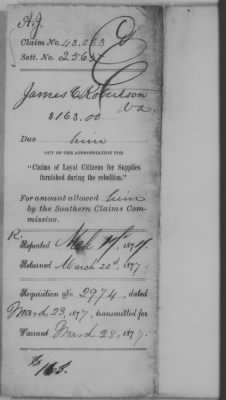 A.J.
Claim No. 43,063
Sett. No. 2562
James C. Robertson
Va.
$163.00
Due him
OUT OF THE APPROPRIATION FOR
"Claims of Loyal Citizens for Supplies
furnished during the rebellion."
For amount allowed him
by the Southern Claims Com-
mission.
R.
Reported Mch 1877.
Returned March 20th, 1877.
Requisition No. 2974, dated
March 23, 1877, transmitted for
Warrant March 28, 1877.
$163.